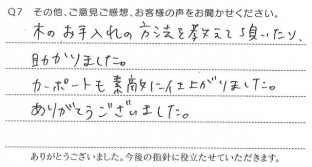 Q7 その他、ご意見ご感想、お客様の声をお聞かせください。
木のお手入れの方法を教えて頂いたり、
助かりました。
カーポートも素敵に仕上がりました。
ありがとうございました。
ありがとうございました。今後の指針に役立たせていただきます。